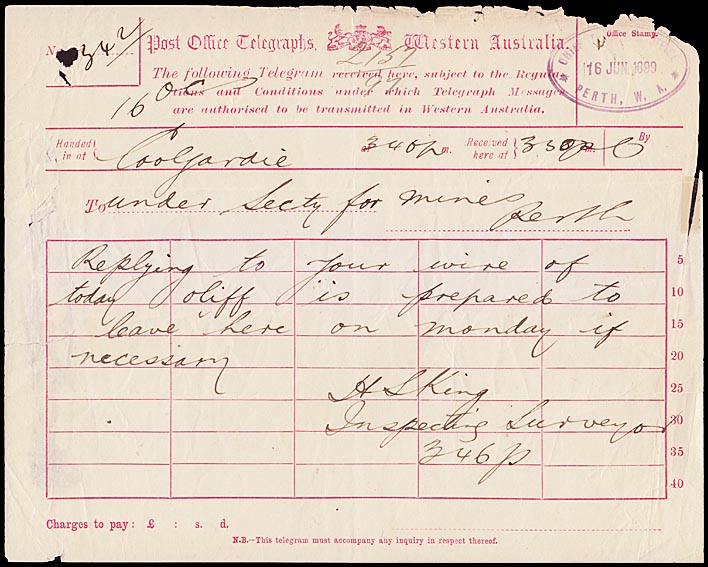 N. 342
Post Office Telegraphs, Western Australia.
Office Stamp.
16 JUN 1899
PERTH, W. A.
The following Telegram received here, subject to the Regula-
tions and Conditions under which Telegraph Messages
are authorised to be transmitted in Western Australia.
16
Handed in at Coolgardie 340p m. Received here at 350p m. By
To under Secty for mines
Perth
Replying to your wire of 5
today oliff is prepared to 10
leave here on monday if 15
necessary 20
H S King 25
Inspecting Surveyor 30
346p 35
40
Charges to pay: £ : s. d.
N.B.—This telegram must accompany any inquiry in respect thereof.